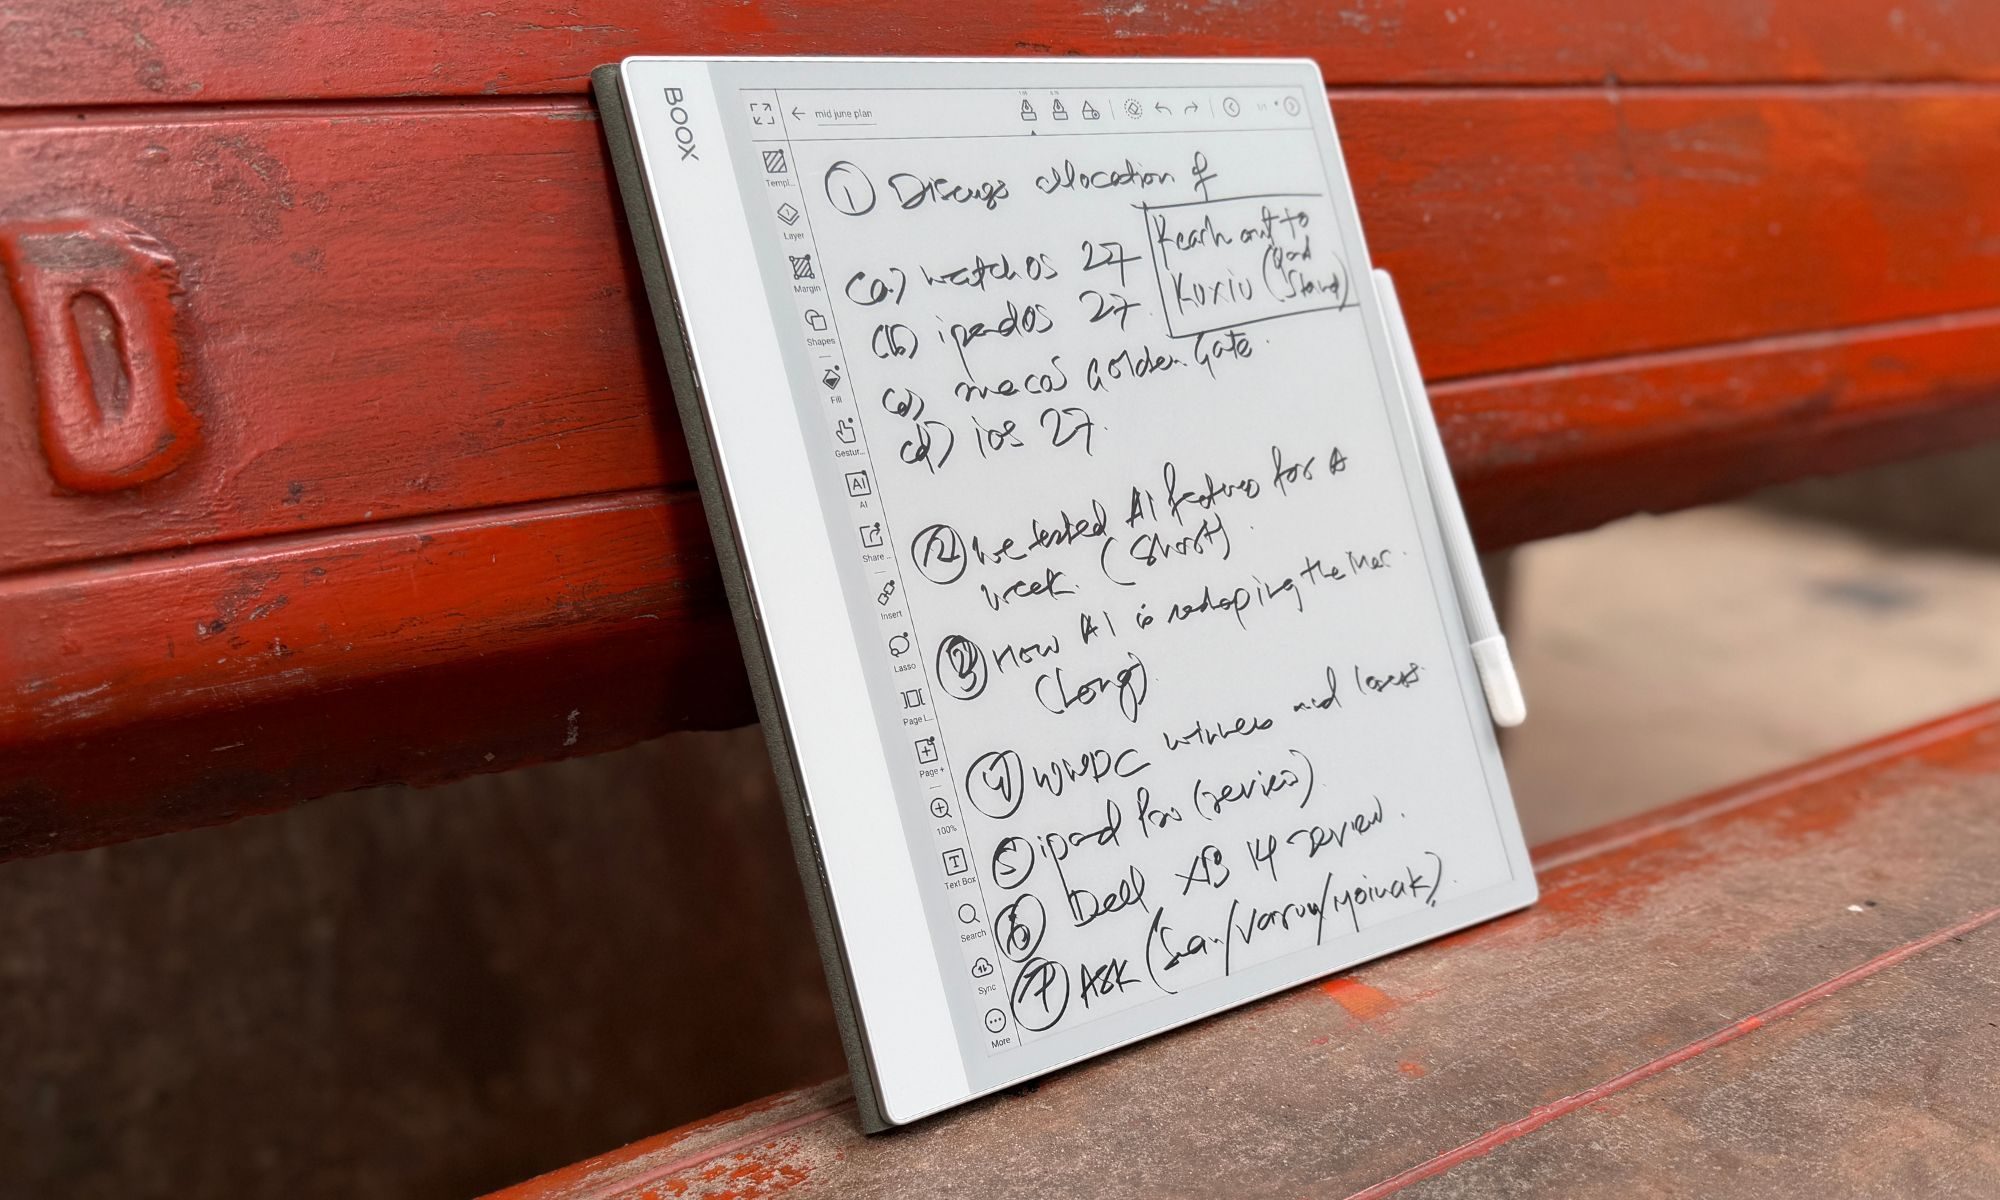 D
BOOX
mid june plan
Templ...
Layer
Margin
Shapes
Fill
Gestur...
AI
AI
Share ...
Insert
Lasso
Page l...
Page +
100%
T
Text Box
Search
Sync
More
① Discuss allocation of
(a) watchOS 27
(b) ipadOS 27.
(c) macOS Golden Gate.
(d) iOS 27.
Reach out to
Kuxiu (Stand)
② We tested AI features for A
week. (Short).
③ How AI is reshaping the Mac.
(Long).
④ WWDC winners and losers.
⑤ ipad Pro (review).
⑥ Dell XPS 14 review.
⑦ ASK (/Varun/Moinak).